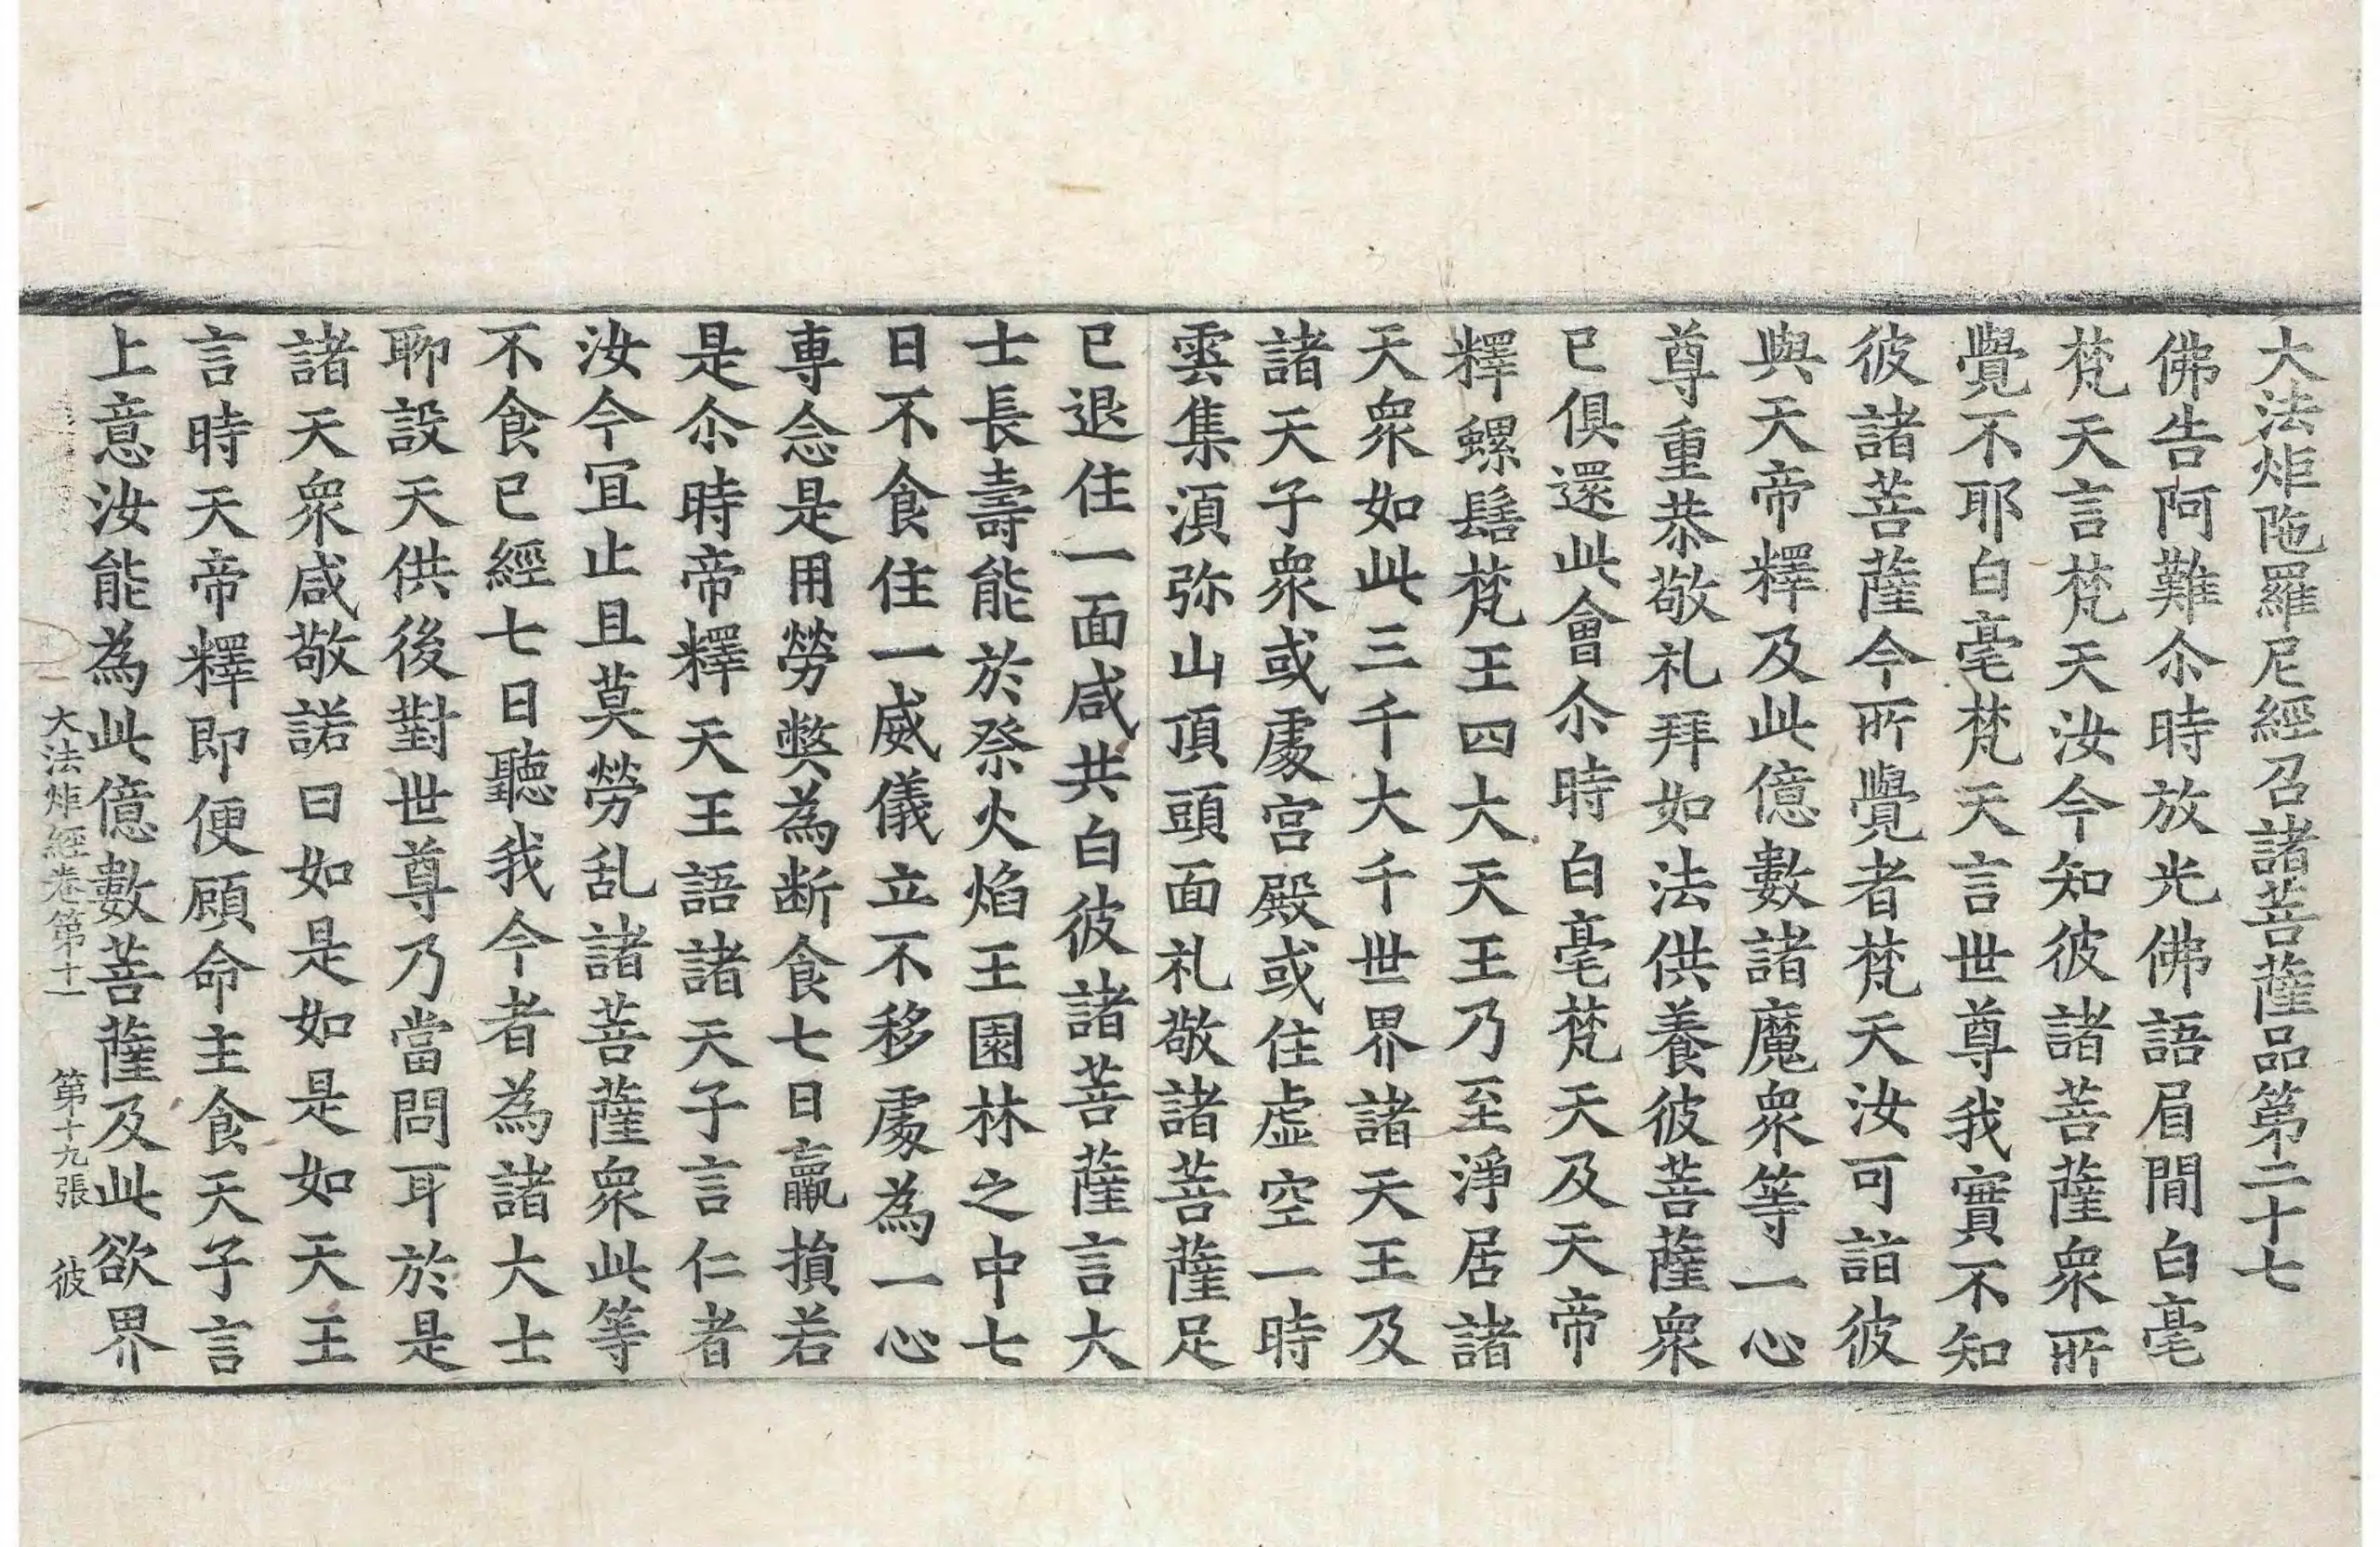 大法炬陁羅尼經召諸菩薩品第二十七
佛告阿難尒時放光佛語眉閒白毫
梵天言梵天汝今知彼諸菩薩衆所
覺不耶白毫梵天言世尊我實不知
彼諸菩薩今所覺者梵天汝可詣彼
與天帝釋及此億數諸魔衆等一心
尊重恭敬礼拜如法供養彼菩薩衆
已俱還此會尒時白毫梵天及天帝
釋螺髻梵王四大天王乃至淨居諸
天衆如此三千大千世界諸天王及
諸天子衆或處宮殿或住虛空一時
雲集湏弥山頂頭面礼敬諸菩薩足
已退住一面咸共白彼諸菩薩言大
士長壽能於祭火焰王園林之中七
日不食住一威儀立不移處為一心
專念是用勞弊為断食七日羸損若
是尒時帝釋天王語諸天子言仁者
汝今冝止且莫勞乱諸菩薩衆此等
不食已經七日聽我今者為諸大士
聊設天供後對世尊乃當問耳於是
諸天衆咸敬諾曰如是如是如天王
言時天帝釋即便顧命主食天子言
上意汝能為此億數菩薩及此欲界
大法炬經卷第十一　第十九張　彼